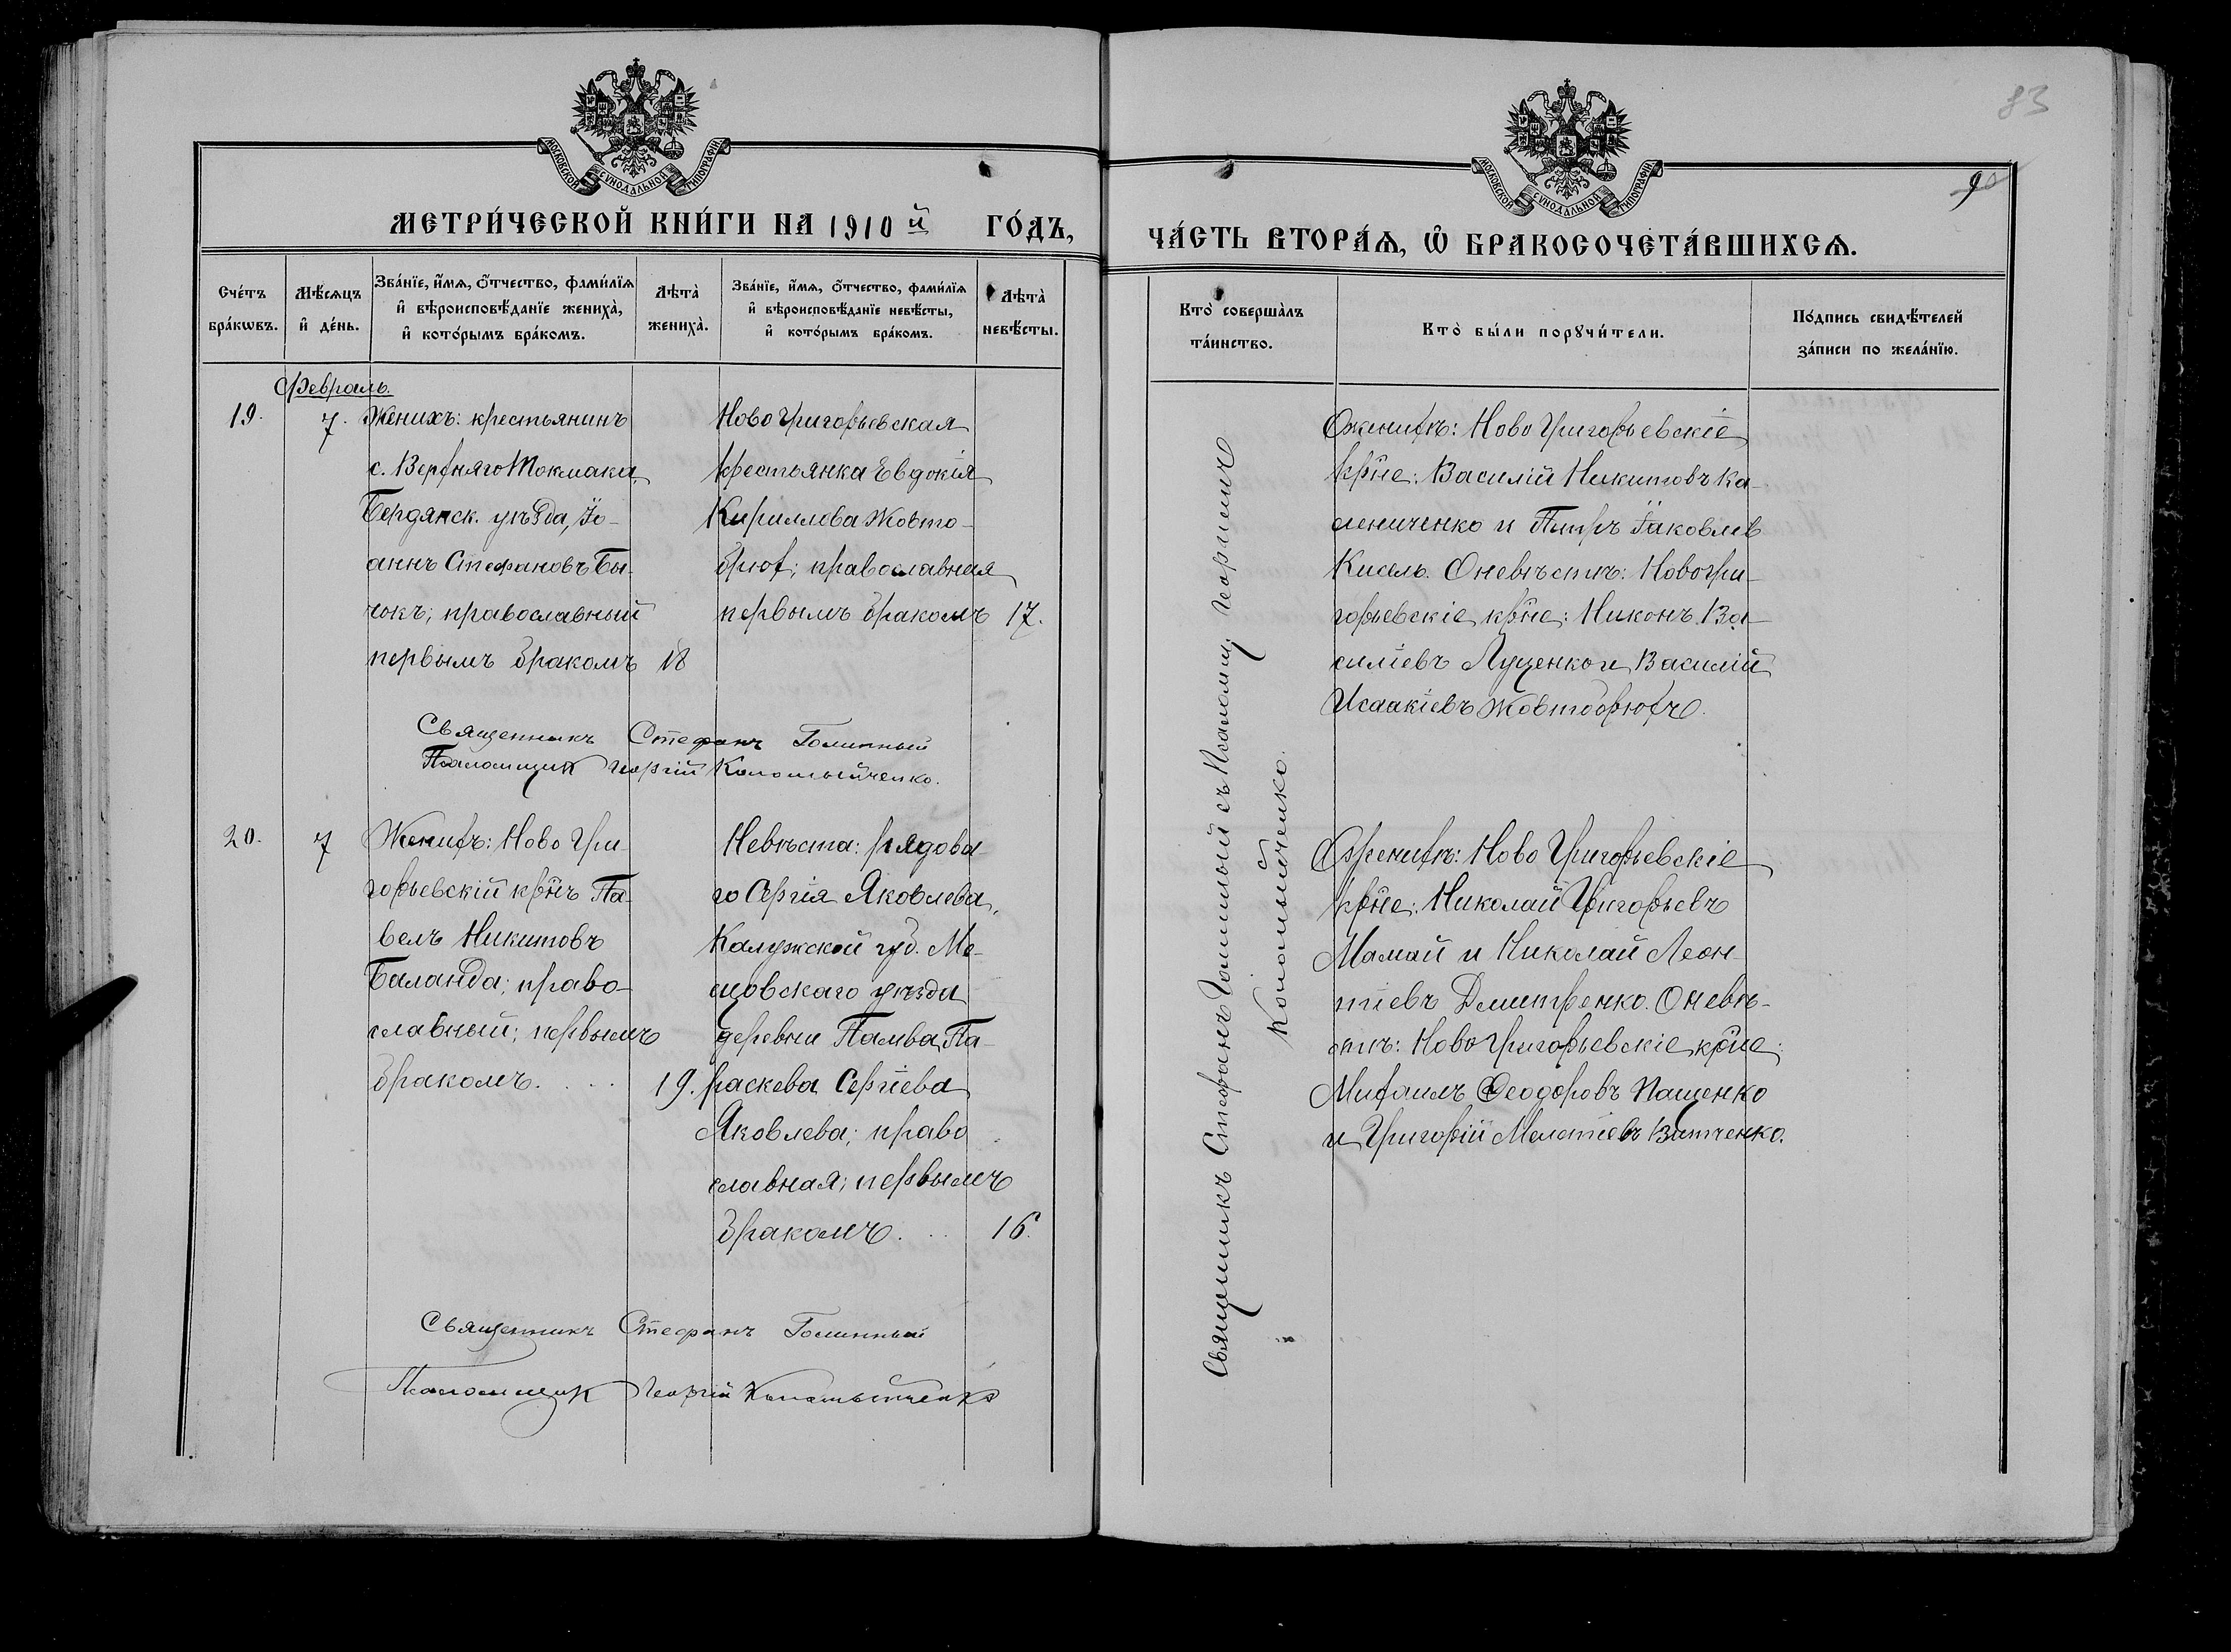 83
9
МОСКОВСКОЙ СѴНОДАЛЬНОЙ ТИПОГРАФІИ
МЕТРИ́ЧЕСКОЙ КНИ́ГИ НА 1910 й ГО́ДЪ,
Сче́тъ бра́кѡвъ.
Мѣ́сѧцъ и҆ де́нь.
Зва́нїе, и҆́мѧ, о҆́тчество, фами́лїѧ
и҆ вѣроисповѣ́данїе жениха̀,
и҆ кото́рымъ бра́комъ.
Лѣта̀ жениха̀.
Зва́нїе, и҆́мѧ, о҆́тчество, фами́лїѧ
и҆ вѣроисповѣ́данїе невѣ́сты,
и҆ кото́рымъ бра́комъ.
Лѣта̀ невѣ́сты.
Февраль.
19.
7.
Женихъ: крестьянинъ
с. Верхняго Токмака
Бердянск. уѣзда, Іо-
аннъ Стефановъ Бы-
чокъ; православный
первымъ бракомъ 18
Ново Григорьевская
крестьянка Евдокія
Кириллова Жовто-
брюх; православная
первымъ бракомъ 17.
Священникъ Стефанъ Голинный
Псаломщик Георгій Коломыйченко.
20.
7
Женихъ: Ново Гри-
горьевскій крнъ Па-
велъ Никитовъ
Баланда; право-
славный; первымъ
бракомъ. . . . 19.
Невѣста: рядова-
го Сергія Яковлева,
Калужской губ. Ме-
щовскаго уѣзда
деревни Памва Па-
раскева Сергіева
Яковлева; право
славная; первымъ
бракомъ. . . 16.
Священникъ Стефанъ Голинный
Псаломщик Георгій Коломыйченко
МОСКОВСКОЙ СѴНОДАЛЬНОЙ ТИПОГРАФІИ
ЧА́СТЬ ВТОРА́Ѧ, Ѡ҆ БРАКОСОЧЕТА́ВШИХСѦ.
Кто̀ соверша́лъ
та́инство.
Кто̀ бы́ли порꙋчи́тели.
По́дпись свидѣ́телей
за́писи по жела́нїю.
Священникъ Стефанъ Голинный съ Псаломщ. Георгіемъ
Коломыйченко.
О женихѣ: Ново Григорьевскіе
крне: Василій Никитовъ Ка-
лениченко и Петръ Іаковлев
Кисель. О невѣстѣ: Новогри-
горьевскіе крне: Никонъ Ва-
силіевъ Луценко и Василій
Исаакіевъ Жовтобрюхъ.
О женихѣ: Ново Григорьевскіе
крне: Николай Григорьевъ
Мамай и Николай Леон-
тіевъ Дмитренко. О невѣ-
стѣ: Ново Григорьевскіе крне:
Михаилъ Феодоровъ Пащенко
и Григорій Мелетіевъ Витченко.